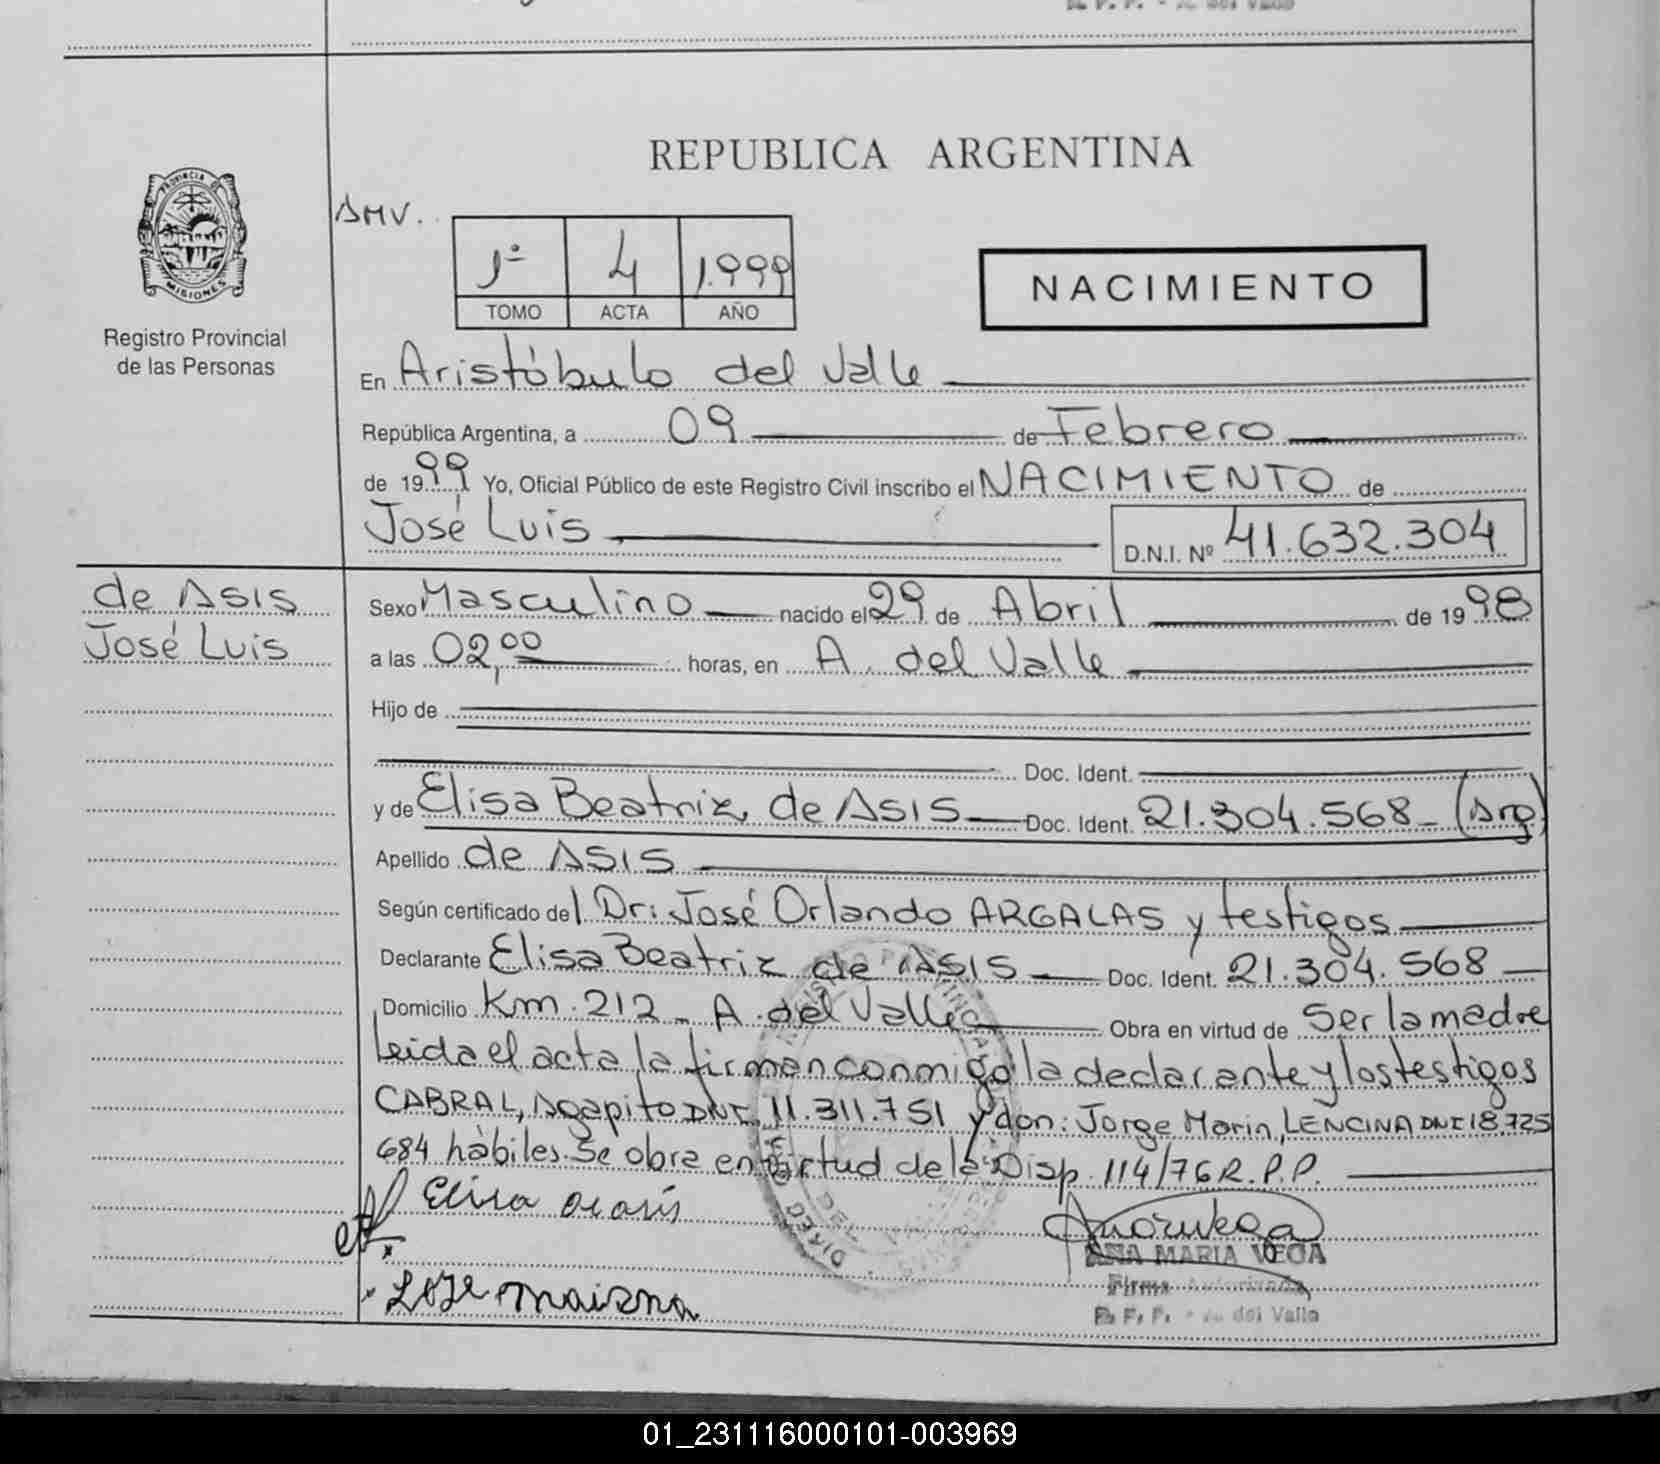 REPUBLICA ARGENTINA
PROVINCIA DE
MISIONES
Registro Provincial
de las Personas
AMV.
1º 4 1.999
TOMO ACTA AÑO
NACIMIENTO
En Aristóbulo del Valle
República Argentina, a 09 de Febrero
de 1999 Yo, Oficial Público de este Registro Civil inscribo el NACIMIENTO de
José Luis D.N.I. Nº 41.632.304
de ASIS
José Luis
Sexo Masculino nacido el 29 de Abril de 1998
a las 02,00 horas, en A. del Valle
Hijo de
Doc. Ident.
y de Elisa Beatriz, de ASIS Doc. Ident. 21.304.568 (Arg)
Apellido de ASIS
Según certificado del Dr: José Orlando ARGALAS y testigos
Declarante Elisa Beatriz de ASIS Doc. Ident. 21.304.568
Domicilio Km. 212 - A. del Valle Obra en virtud de Ser la madre
Leida el acta la firman conmigo la declarante y los testigos
CABRAL, Agapito DNI 11.311.751 y don: Jorge Marin, LENCINA DNI 18.725
684 hàbiles. Se obra en virtud de la Disp. 114/76 R.P.P.
Elisa de asis
ANA MARIA VEGA
Firma Autorizada
R. P. P. - A. del Valle
01_231116000101-003969